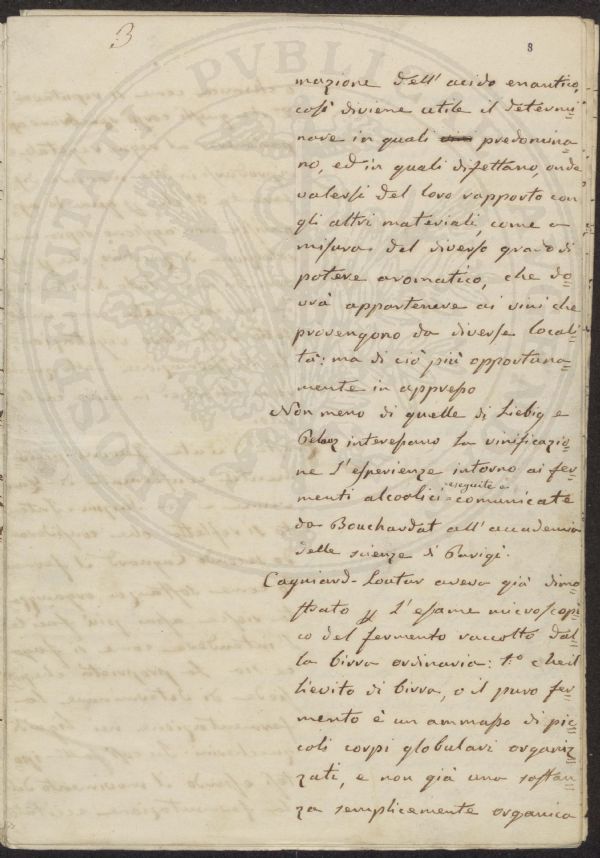 3
8
mazione dell' acido enantico,
così diviene utile il determi
nare in quali predomina-
no, ed in quali difettano, onde
valersi del loro rapporto con
gli altri materiali, come a
misura del diverso grado di
potere aromatico, che do=
vrà appartenere ai vini che
provengono da diverse locali=
tà: ma di ciò più opportuna=
mente in appresso
Non meno di quelle di Liebig e
Pelouz interessano la vinificazio=
ne l'esperienze intorno ai fer=
menti alcoolici eseguite e comunicate
da Bouchardat all' accademia
delle scienze di Parigi.
Cagniard-Loutur aveva già dimo
strato l'esame microscopi
co del fermento raccolto dal=
la birra ordinaria: 1.º che il
lievito di birra, o il puro fer=
mento è un ammasso di pic=
coli corpi globulari organiz=
zati, e non già una sostan=
za semplicemente organica
PROSPERITATI PVBLICAE